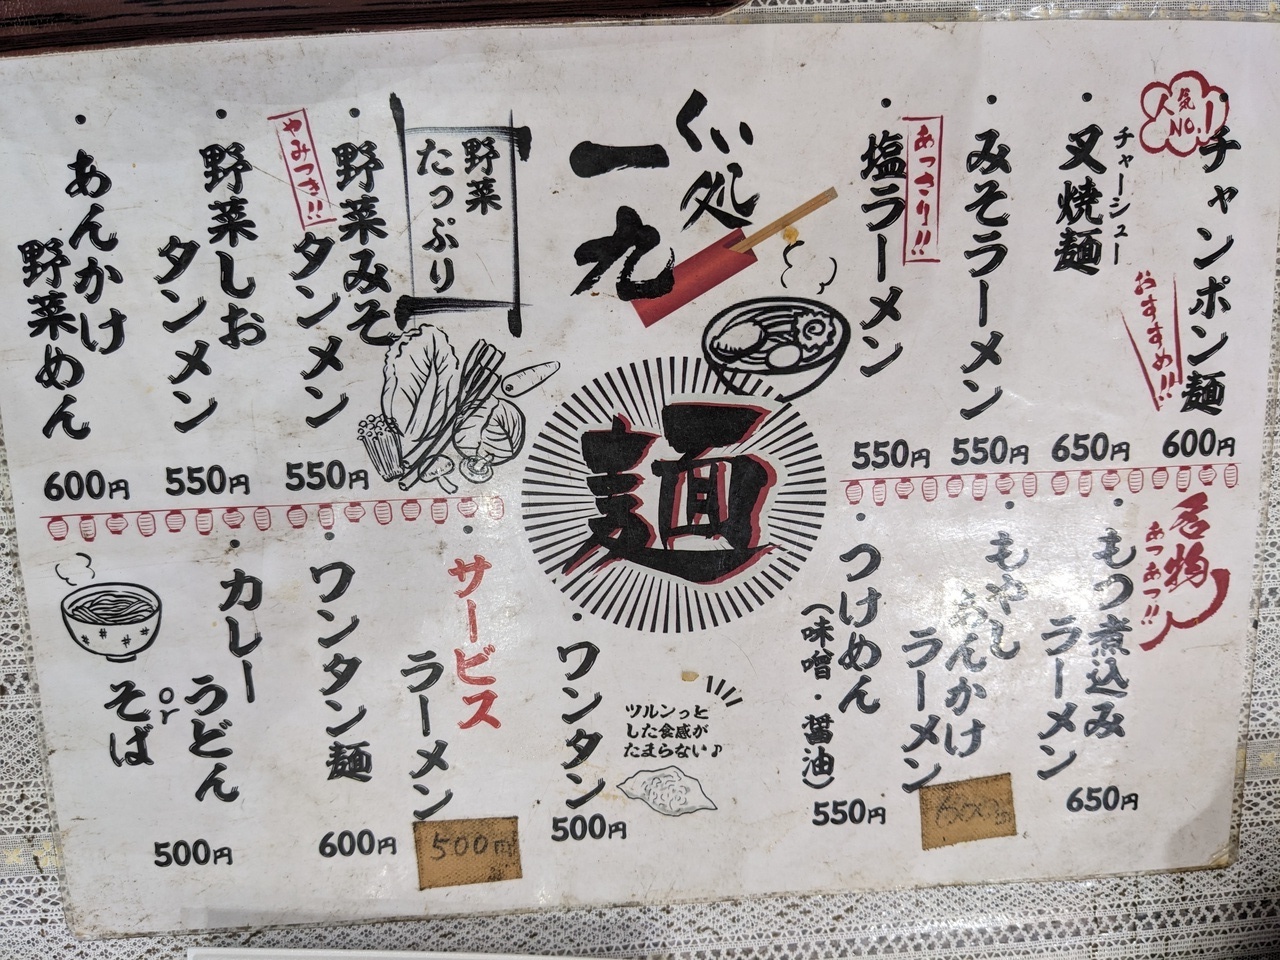 くい処
一九
麺
人気
NO.1
チャンポン麺
おすすめ!!
600円
チャーシュー
叉焼麺
650円
みそラーメン
550円
あっさり!!
塩ラーメン
550円
野菜
たっぷり
野菜みそ
タンメン
やみつき!!
550円
野菜しお
タンメン
550円
あんかけ
野菜めん
600円
名物
あつあつ!!
もつ煮込み
ラーメン
650円
もやし
あんかけ
ラーメン
600円
つけめん
(味噌・醤油)
550円
ツルンっと
した食感が
たまらない♪
ワンタン
500円
サービス
ラーメン
500円
ワンタン麺
600円
カレー
うどん
or
そば
500円